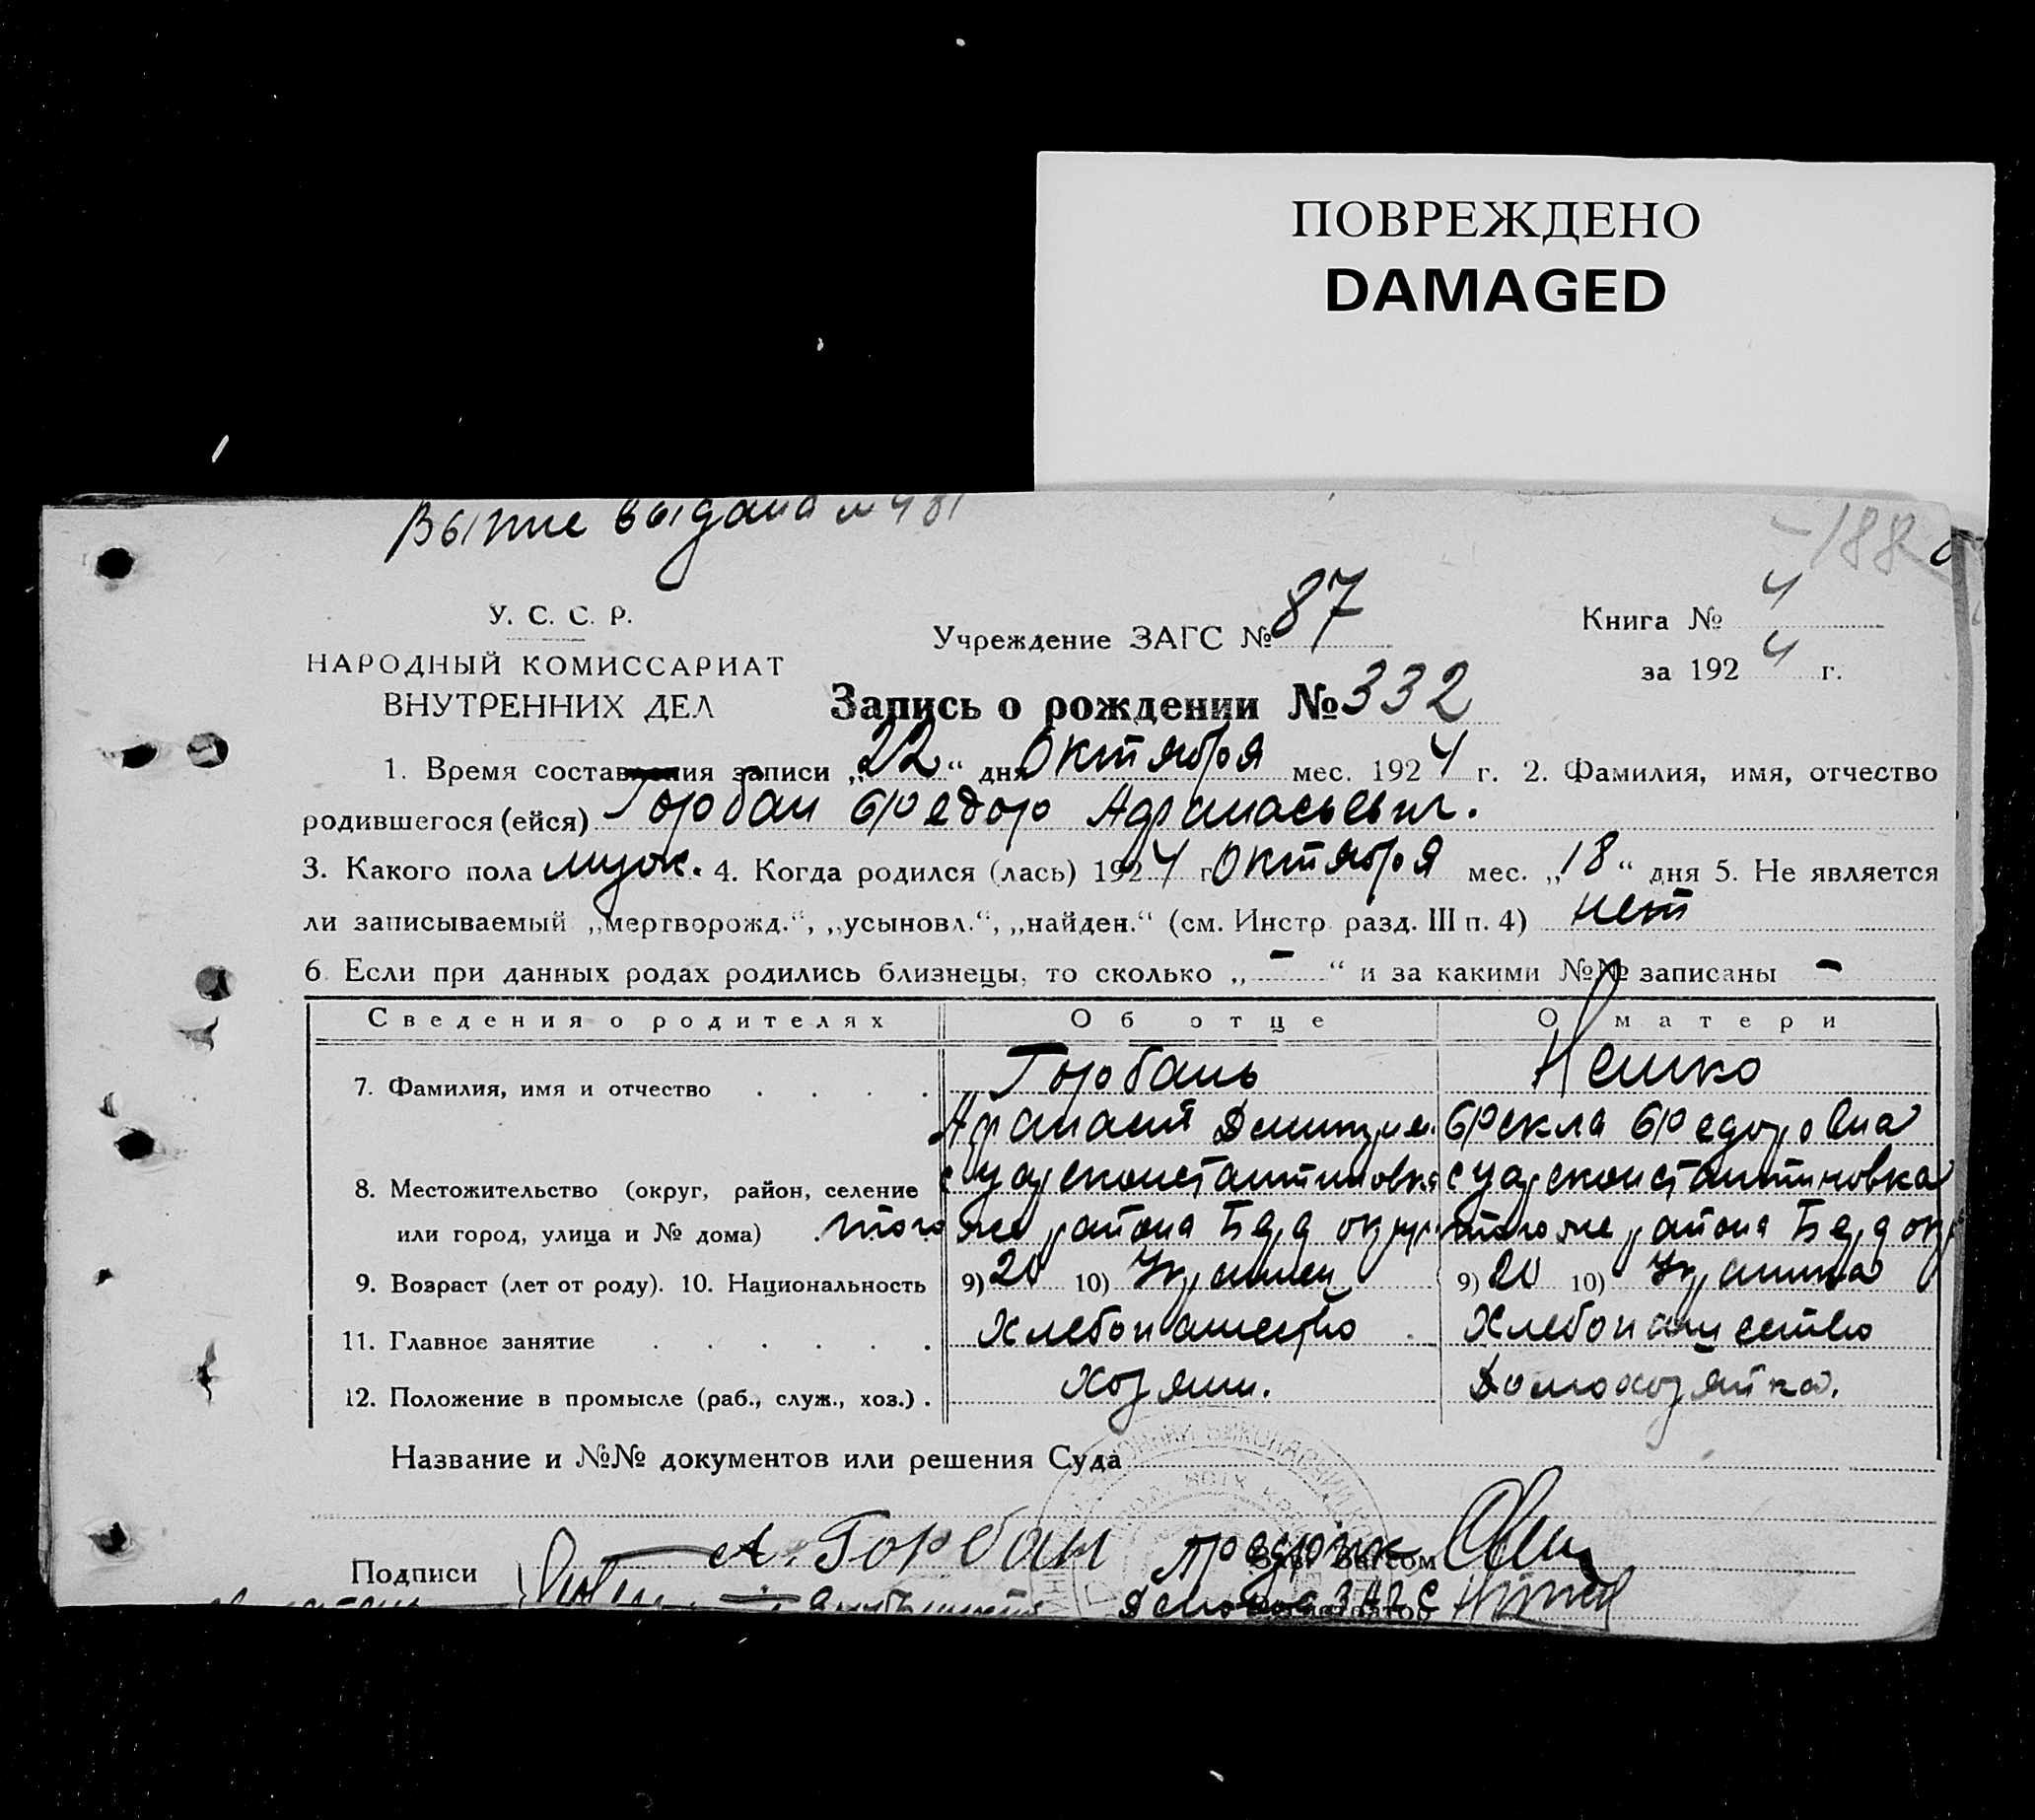 ПОВРЕЖДЕНО
DAMAGED
выдана № 481
-188
У. С. С. Р.
НАРОДНЫЙ КОМИССАРИАТ
ВНУТРЕННИХ ДЕЛ
Учреждение ЗАГС № 87
Книга № 4
за 1924 г.
Запись о рождении № 332
1. Время составления записи „22“ дня Октября мес. 1924 г. 2. Фамилия, имя, отчество
родившегося (ейся) Горбан Федор Афанасьевич.
3. Какого пола муж. 4. Когда родился (лась) 1924 г Октября мес. „18“ дня 5. Не является
ли записываемый „мертворожд.“, „усыновл.“, „найден.“ (см. Инстр. разд. III п. 4) нет
6. Если при данных родах родились близнецы, то сколько „-“ и за какими №№ записаны -
Сведения о родителях Об отце О матери
7. Фамилия, имя и отчество . . . . Горбань Нешко
Афанасий Фекла Федоровна
8. Местожительство (округ, район, селение с Цареконстантиновка с Цареконстантиновка
или город, улица и № дома) . того же района Берд округ того же района Берд окр
9. Возраст (лет от роду). 10. Национальность 9) 20 10) Украинец 9) 20 10) Украинка
11. Главное занятие . . . . . . Хлебопашество Хлебопашество
12. Положение в промысле (раб., служ., хоз.) . Хозяин. Домохозяйка.
Название и №№ документов или решения Суда
Подписи А. Горбан Зав. Загсом